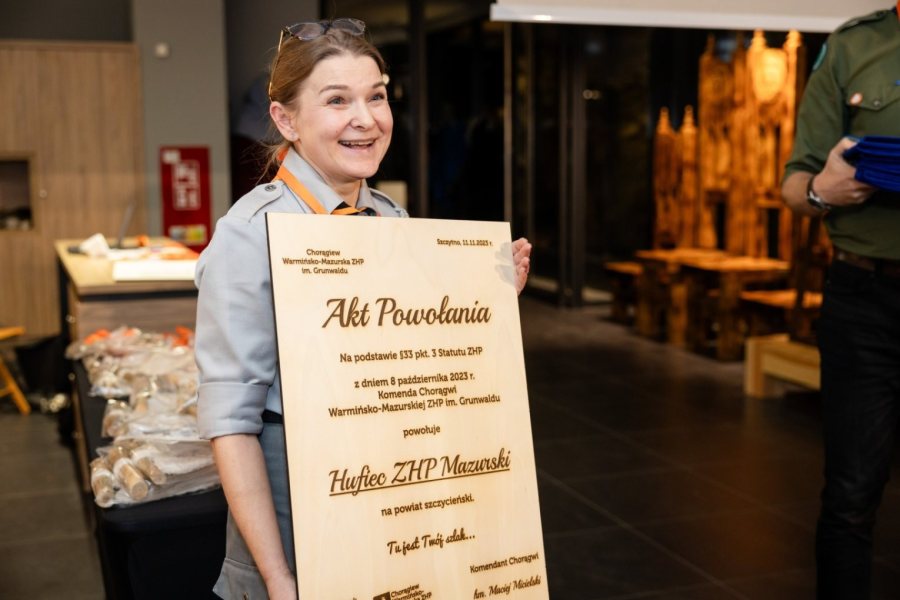 Chorągiew
Warmińsko-Mazurska ZHP
im. Grunwaldu
Szczytno, 11.11.2023 r.
Akt Powołania
Na podstawie §33 pkt. 3 Statutu ZHP
z dniem 8 października 2023 r.
Komenda Chorągwi
Warmińsko-Mazurskiej ZHP im. Grunwaldu
powołuje
Hufiec ZHP Mazurski
na powiat szczycieński.
Tu jest Twój szlak...
Komendant Chorągwi
hm. Maciej
Chorągiew
Warmińsko-
Mazurska ZHP